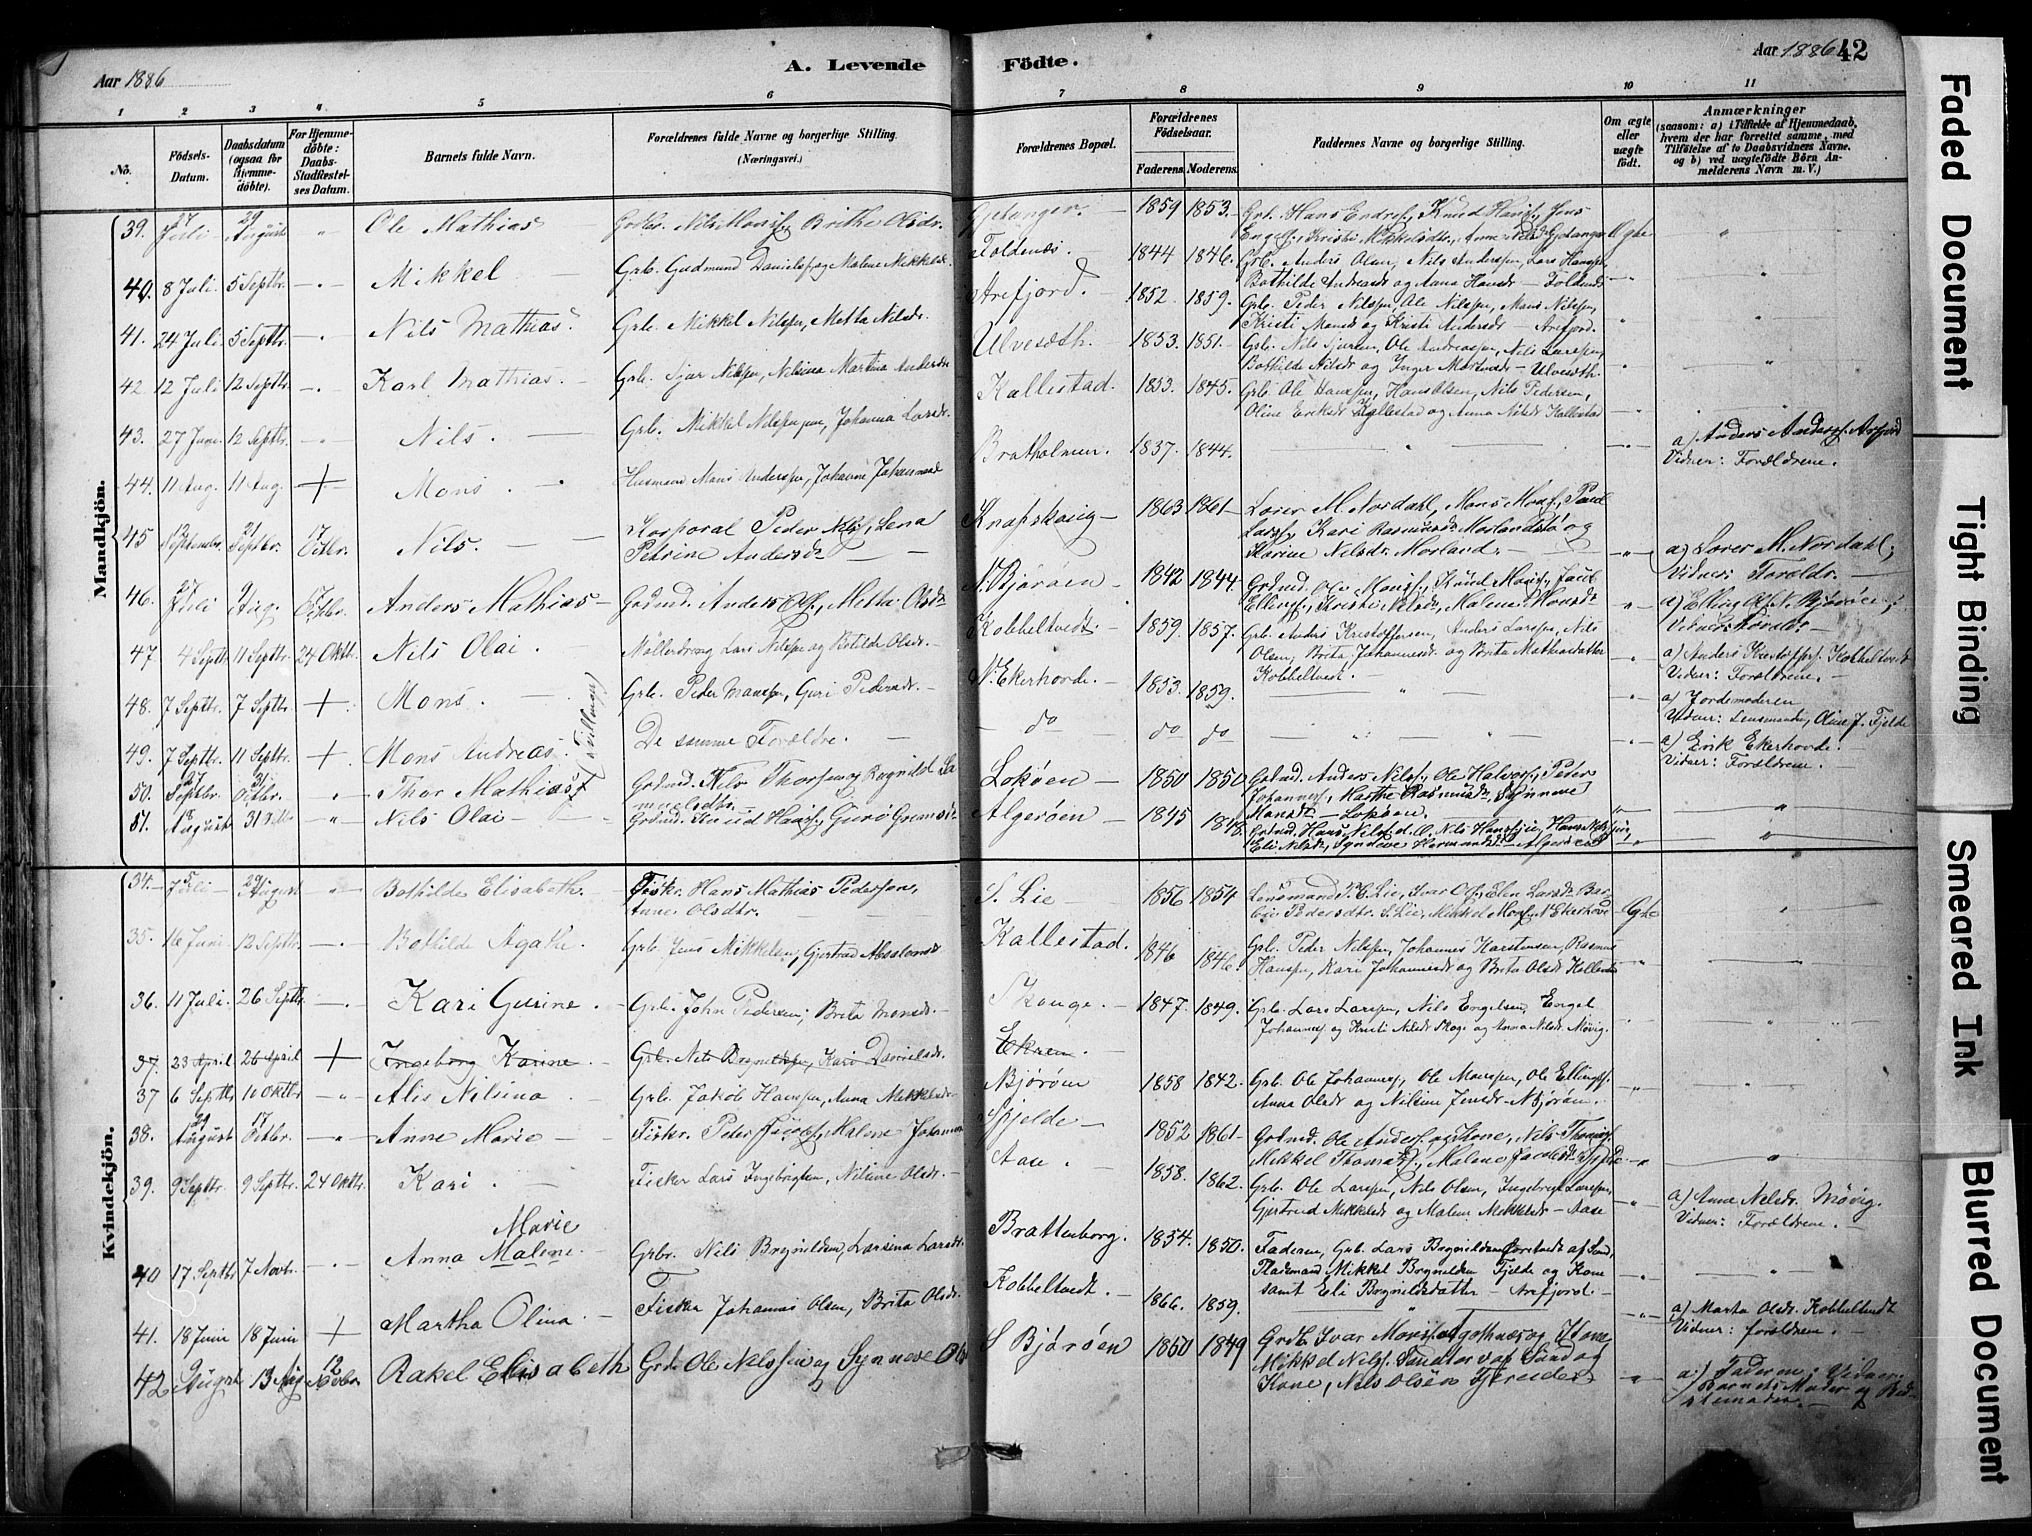 Aar 1886
A. Levende
Födte.
Aar 1886
42
1 2 3 4 5 6 7 8 9 10 11
No.
Födsels-Datum.
Daabsdatum (ogsaa for Hjemmedöbte).
For Hjemmedöbte: Daabs-Stadfæstelses Datum.
Barnets fulde Navn.
Forældrenes fulde Navne og borgerlige Stilling. (Næringsvei.)
Forældrenes Bopæl.
Forældrenes Födselsaar.
Faderens. Moderens.
Faddernes Navne og borgerlige Stilling.
Om ægte eller uægte födt.
Anmærkninger
(saasom: a) i Tilfælde af Hjemmedaab, hvem der har forrettet samme, med Tilföielse af to Daabsvidners Navne. og b) ved uægtefödte Börn Anmelderens Navn m. V.)
Mandkjön.
39. 27 Juli 29 August " Ole Mathias Grbr. Nils Monss., Brithe Olsdr. Gjetanger. 1859 1853. Grb. Hans Endres., Knud Hanss., Jens
Engels., Kristi Mikkelsdtr., Anne Nilsdr Gjetanger Ægte "
40. 8 Juli 5 Septbr. " Mikkel Grb. Gudmund Danielsen og Malene Mikkelsdr. Foldenæs. 1844 1846. Grb. Anders Olsen, Nils Andersen, Lars Hanssen,
Bothilde Andersdr og Anna Hansdr - Foldnæs "
41. 24 Juli 5 Septbr. " Nils Mathias. Grb. Mikkel Nilssen, Metta Nilsdr. Arefjord. 1852. 1859. Grb. Peder Nilssen, Ole Nilssen, Mons Nilssen,
Kristi Monsdr og Kristi Andersdr - Arefjord. "
42. 12 Juli 12 Septbr. " Karl Mathias. Grb. Sjur Nilssen, Nilsina Martina Andersdr Ulvesæth. 1853. 1851. Grb. Nils Sjursen, Ole Andreassen, Nils Larssen,
Bothilde Nilsdr og Inger Mortensdr - Ulvesæth. "
43. 27 Juni 12 Septbr. " Nils. Grb. Mikkel Nilssen, Johanna Larsdr. Kallestad. 1853. 1845. Grb. Ole Hanssen, Hans Olsen, Nils Pedersen,
Oline Eriksdr Kallestad og Anna Nilsdr Kallestad "
44. 11 Aug. 11 Aug. + Mons. Husmand Mons Anderssen, Johanne Johannesdr Bratholmen. 1837. 1844. " a) Anders Anderss. Arefjord
Vidner: Forældrene.
45 Septembr. Septbr. 17 Octbr. Nils. Korporal Peder Nilss., Lena
Petrine Andersdr Knapskoug 1863 1861 Lærer M. Nordahl, Mons Monss., Paul
Larss., Kari Rasmusdr Morlandstø og
Karine Nilsdr. Morland. " a) Lærer M. Nordahl;
Vidner: Foreldr.
46. Juli Aug. 17 Octbr. Anders Mathias Grdmd. Anders Ols., Metta Olsdr N. Bjørøen 1842 1844. Grdmd. Ole Monss., Knud Monss., Jacob
Ellings., Kristi Nilsdr, Malene Monsdr " a) Elling Ols. N. Bjørøen;
Vidner: Foreldr.
47. 4 Septbr 11 Septbr. 24 Oktbr. Nils Olai. Møllerdreng Lars Nilssen og Botilde Olsdr. Kobbeltvedt. 1859. 1857. Grb. Anders Kristoffersen, Anders Larssen, Nils
Olsen, Brita Johannesdr og Brita Mathiasdatter
Kobbeltvedt. " a) Anders Kristoffers. Kobbeltvedt
Vidner: Forældrene.
48. 7 Septbr. 7 Septbr. + Mons. (Tvillinger) Grb. Peder Monssen, Guri Pedersdr. N. Ekerhovde. 1853. 1859. " a) Jordemoderen
Vidner: Lensmanden, Oline J. Fjelde
49. 7 Septbr. 11 Septbr. + Mons Andreas. De samme Forældre. do do do " a) Erik Ekerhovde.
Vidner: Forældrene.
50. 27 Septbr. 31 Octbr. " Thor Mathias Grdmd. Nils Thorssen og Ragnild Samuelsdtr. Lokøen 1850 1850 Grdmd. Anders Nilss., Ole Halvors., Peder
Johanness., Marthe Rasmusdr, Synneve
Monsdr - Lokøen. "
51. August 31 Octbr " Nils Olai Grdmd. Knud Hanss., Guro Gremsdr Algerøen 1845 Grdmd. Hans Nilss. d. O. Nils Hanss.,
Eli Nilsdr, Synneve Hermansdr - Algerøen "
Kvindekjön.
34. 5 Juli 29 August " Bothilde Elisabeth. Fiskr. Hans Mathias Pederson,
Anne Olsdtr. S. Lie 1856 1854 Lensmand P. C. Lie, Ivar Ols., Elen Larsdr
Pedersdtr. S. Lie, Mikkel Monss. N. Ekerhovde Ægte "
35. 16 Juni 12 Septbr. " Bothilde Agathe. Grb. Jens Mikkelsen, Gjertrud Absalonsdr Kallestad. 1846 1846. Grb. Peder Nilssen, Johannes Karstensen, Rasmus
Hanssen, Kari Johannesdr og Brita Olsdr Kallestad "
36. 11 Juli. 26 Septbr. " Kari Gurine. Grb. John Pedersen, Brita Monsdr. Skauge. 1847. 1849. Grb. Lars Larssen, Nils Engelsen, Engel
Johanness. og Kristi Nilsdr Skoge og Anna Nilsdr. Møvig. "
37. 23 April 26 April + Ingeborg Karine. Grb. Nils Brynildsen, Kari Danielsdr. Ekren.
37 6 Septbr 10 Oktbr " Alis Nilsina Grb. Jakob Hanssen, Anna Mikkelsdr N Bjørøen 1858 1842. Grb. Ole Johanness., Ole Monssen, Ole Ellings.
Anna Olsdr og Nilsine Jensdr - N. Bjørøen. "
38. 29 August 17 Octbr. " Anne Marie Fiskr. Peter Jacobs., Malene Johannesdr Fjelde 1852 1861 Grdmd. Ole Anders. og Kone, Nils Thomass.
Mikkel Thomass., Malene Jacobsdr Fjelde "
39. 9 Septbr. 9 Septbr. 24 Oktbr. Kari. Fisker Lars Ingebrigtsen, Nilsine Olsdr. Aase. 1858. 1862. Grb. Ole Larssen, Nils Olsen, Ingebrigt Larssen,
Gjertrud Mikkelsdr og Malene Mikkelsdr - Aase " a) Anne Nilsdr. Møvig.
Vidner: Forældrene.
40 17 Septbr 7 Novbr. " Anna Marie Malene. Grbr. Nils Brynildsen, Larsina Larsdr. Brattenborg. 1854. 1850. Faderen, Grb. Lars Brynildsen Foretvedt af Sund,
Pladsmand Mikkel Brynildsen Fjelde og Kone
samt Eli Brynildsdatter - Arefjord. "
41. 18 Juni 18 Juni + Martha Olina. Fisker Johannes Olsen, Brita Olsdr. Kobbeltvedt. 1866. 1859. " a) Marta Olsdr. Kobbeltvedt
Vidner: forældrene.
42 August 13 Aug 12 Novbr. Rakel Elisabeth Grd. Ole Nilssen og Synneve Ols S Bjørøen 1860 1849 Grdb. Ivar Monss. Agothnæs og Kone
Mikkel Nilss. af Sund og
Kone, Nils Olsen Tyreidet " a) Faderen; Vidner:
Barnets Moder og Bedstemoder.
Faded Document
Tight Binding
Smeared Ink
Blurred Document